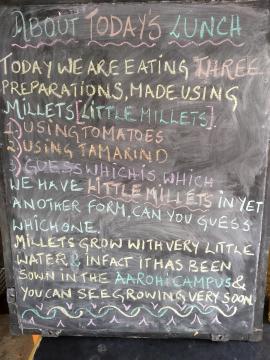 ABOUT TODAY'S LUNCH
TODAY WE ARE EATING THREE
PREPARATIONS, MADE USING
MILLETS [LITTLE MILLETS].
1) USING TOMATOES
2) USING TAMARIND
3) GUESS WHICH IS WHICH
WE HAVE LITTLE MILLETS IN YET
ANOTHER FORM, CAN YOU GUESS
WHICH ONE.
MILLETS GROW WITH VERY LITTLE
WATER & INFACT IT HAS BEEN
SOWN IN THE AAROHI CAMPUS &
YOU CAN SEE GROWING VERY SOON